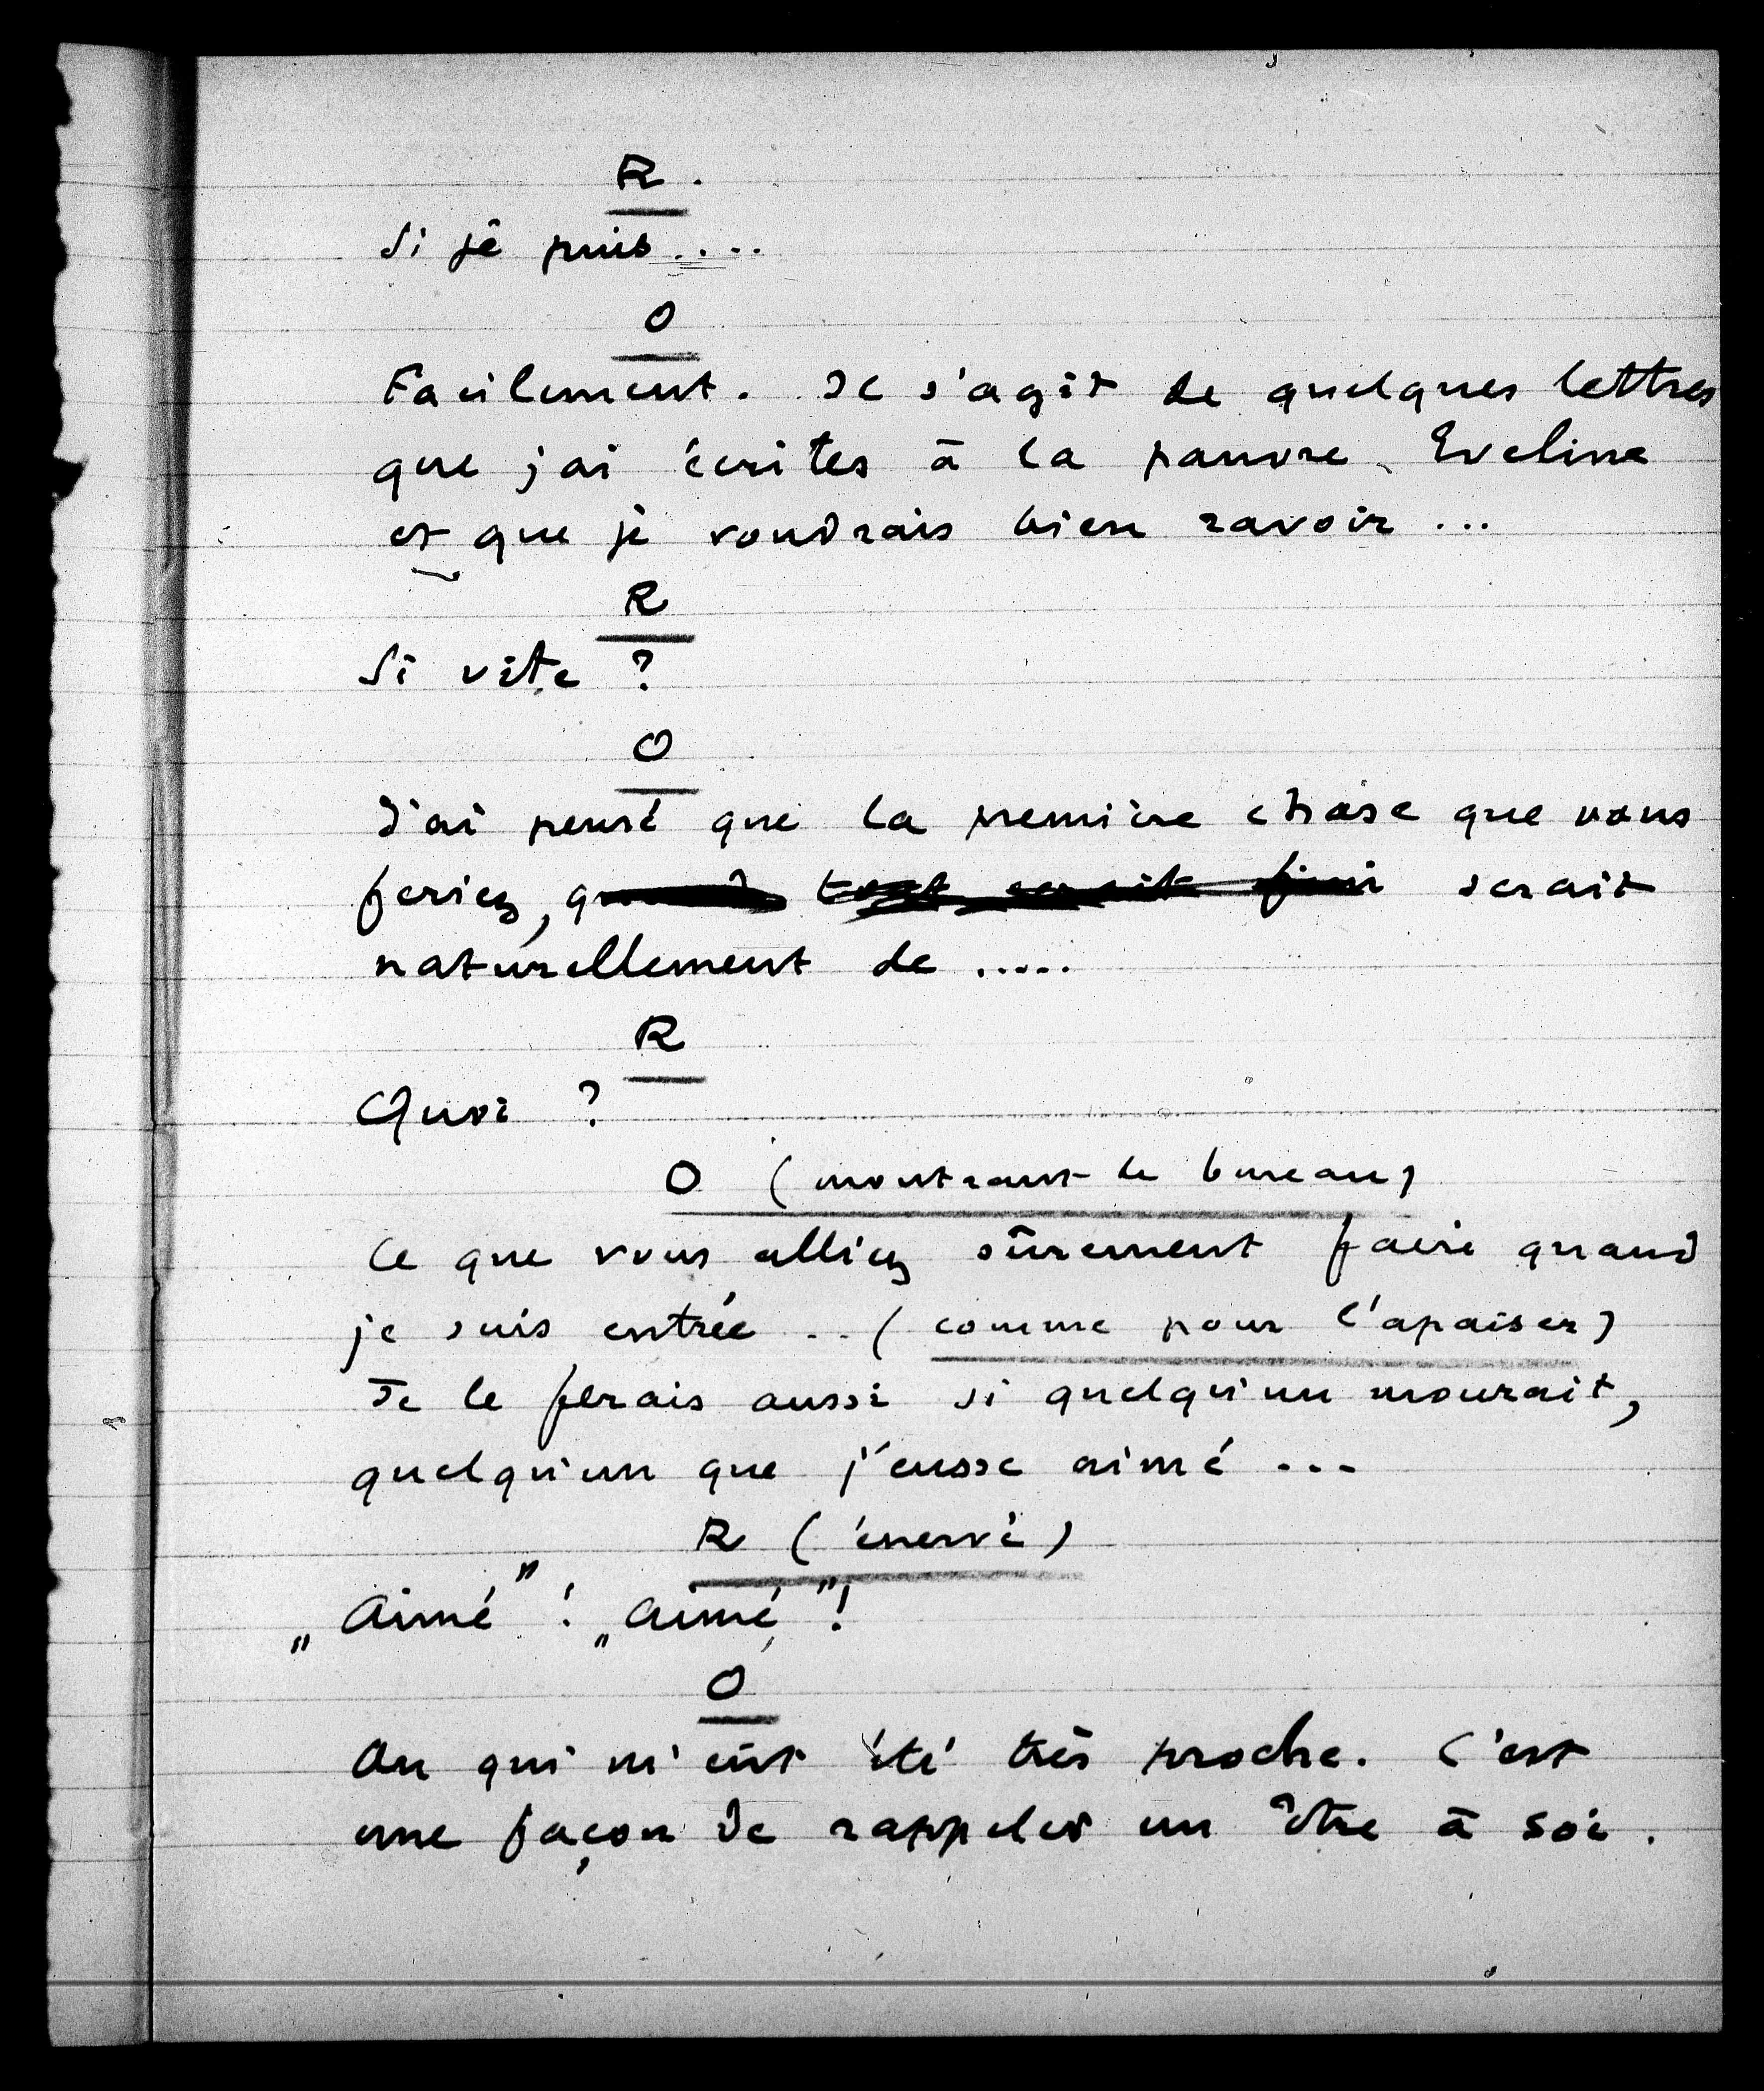 R.
Si je puis....
O
Facilement. Il s'agit de quelques lettres
que j'ai écrites à la pauvre Eveline
et que je voudrais bien ravoir ...
R
Si vite ?
O
J'ai pensé que la première chose que vous
feriez, quand tout serait fini serait
naturellement de .....
R
Quoi ?
O (montrant le bureau)
Ce que vous alliez sûrement faire quand
je suis entrée ... (comme pour l'apaiser)
Je le ferais aussi si quelqu'un mourait,
quelqu'un que j'eusse aimé ...
R (énervé)
„Aimé” ! „Aimé” !
O
Ou qui m'eût été très proche. C'est
une façon de rappeler un être à soi.